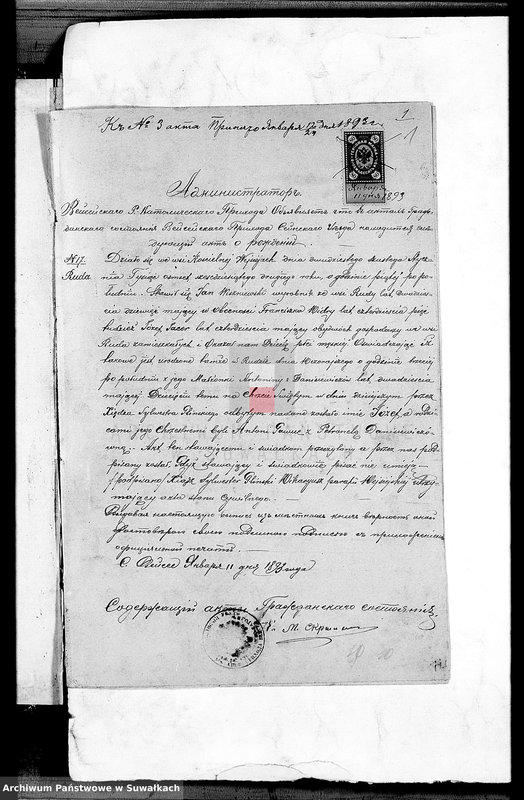 Къ № 3 акта Января 1893 г.
1
1
Января
11 дня 1893
Администраторъ
Вейсейскаго Р. Католическаго Прихода Объявляетъ что въ актахъ Граж-
данскаго состоянія Вейсейскаго Прихода Сейнскаго Уѣзда находится слѣ-
дующій актъ о рожденіи
N 17.
Ruda
Działo się we wsi Kościelnej Wejsejach dnia dwudziestego
nia Tysiąc ośmset sześćdziesiątego drugiego roku, o godzinie piątej po po-
łudniu. Stawił się Jan Wiśniewski wyrobnik ze wsi Rudy lat dwadzie-
ścia mający w Obecności Franciszka lat czterdzieści pięć
tudzież Józef lat czterdzieści mający obydwóch gospodarzy we wsi
Rudzie zamieszkałych i Okazał nam Dziecię płci męzkiej Oświadczając że
takowe jest urodzone tamże w Rudzie dnia wczorajszego o godzinie trzeciej
po południu z jego Małżonki Antoniny z Daniszewiczów lat dwadzieścia
mającej Dziecięciu temu na Chrzcie Świętym w dniu dzisiejszym przez
Księdza Sylwestra odbytym nadane zostało imie Józef, a rodzi-
cami jego Chrzestnemi byli Antoni z Petronelą Daniszewiczó-
wną. Akt ten stawającemu i świadkom przeczytany a przez nas pod-
pisany został Gdyż stawający i świadkowie pisać nie umieją
(podpisano) Xiądz Sylwester Wikaryusz parafii Wejsejskiej Utrzy-
mujący akta stanu Cywilnego.
Выдавая настоящую выпись изъ мѣстныхъ книгъ вѣрность оной
удостовѣряю своею подписью съ приложеніемъ
оффиціальной печати.
С. Вейсее Января 11 дня 1893 года
Содержащій акты Гражданскаго состоянія,
Кс. М.
Archiwum Państwowe w Suwałkach